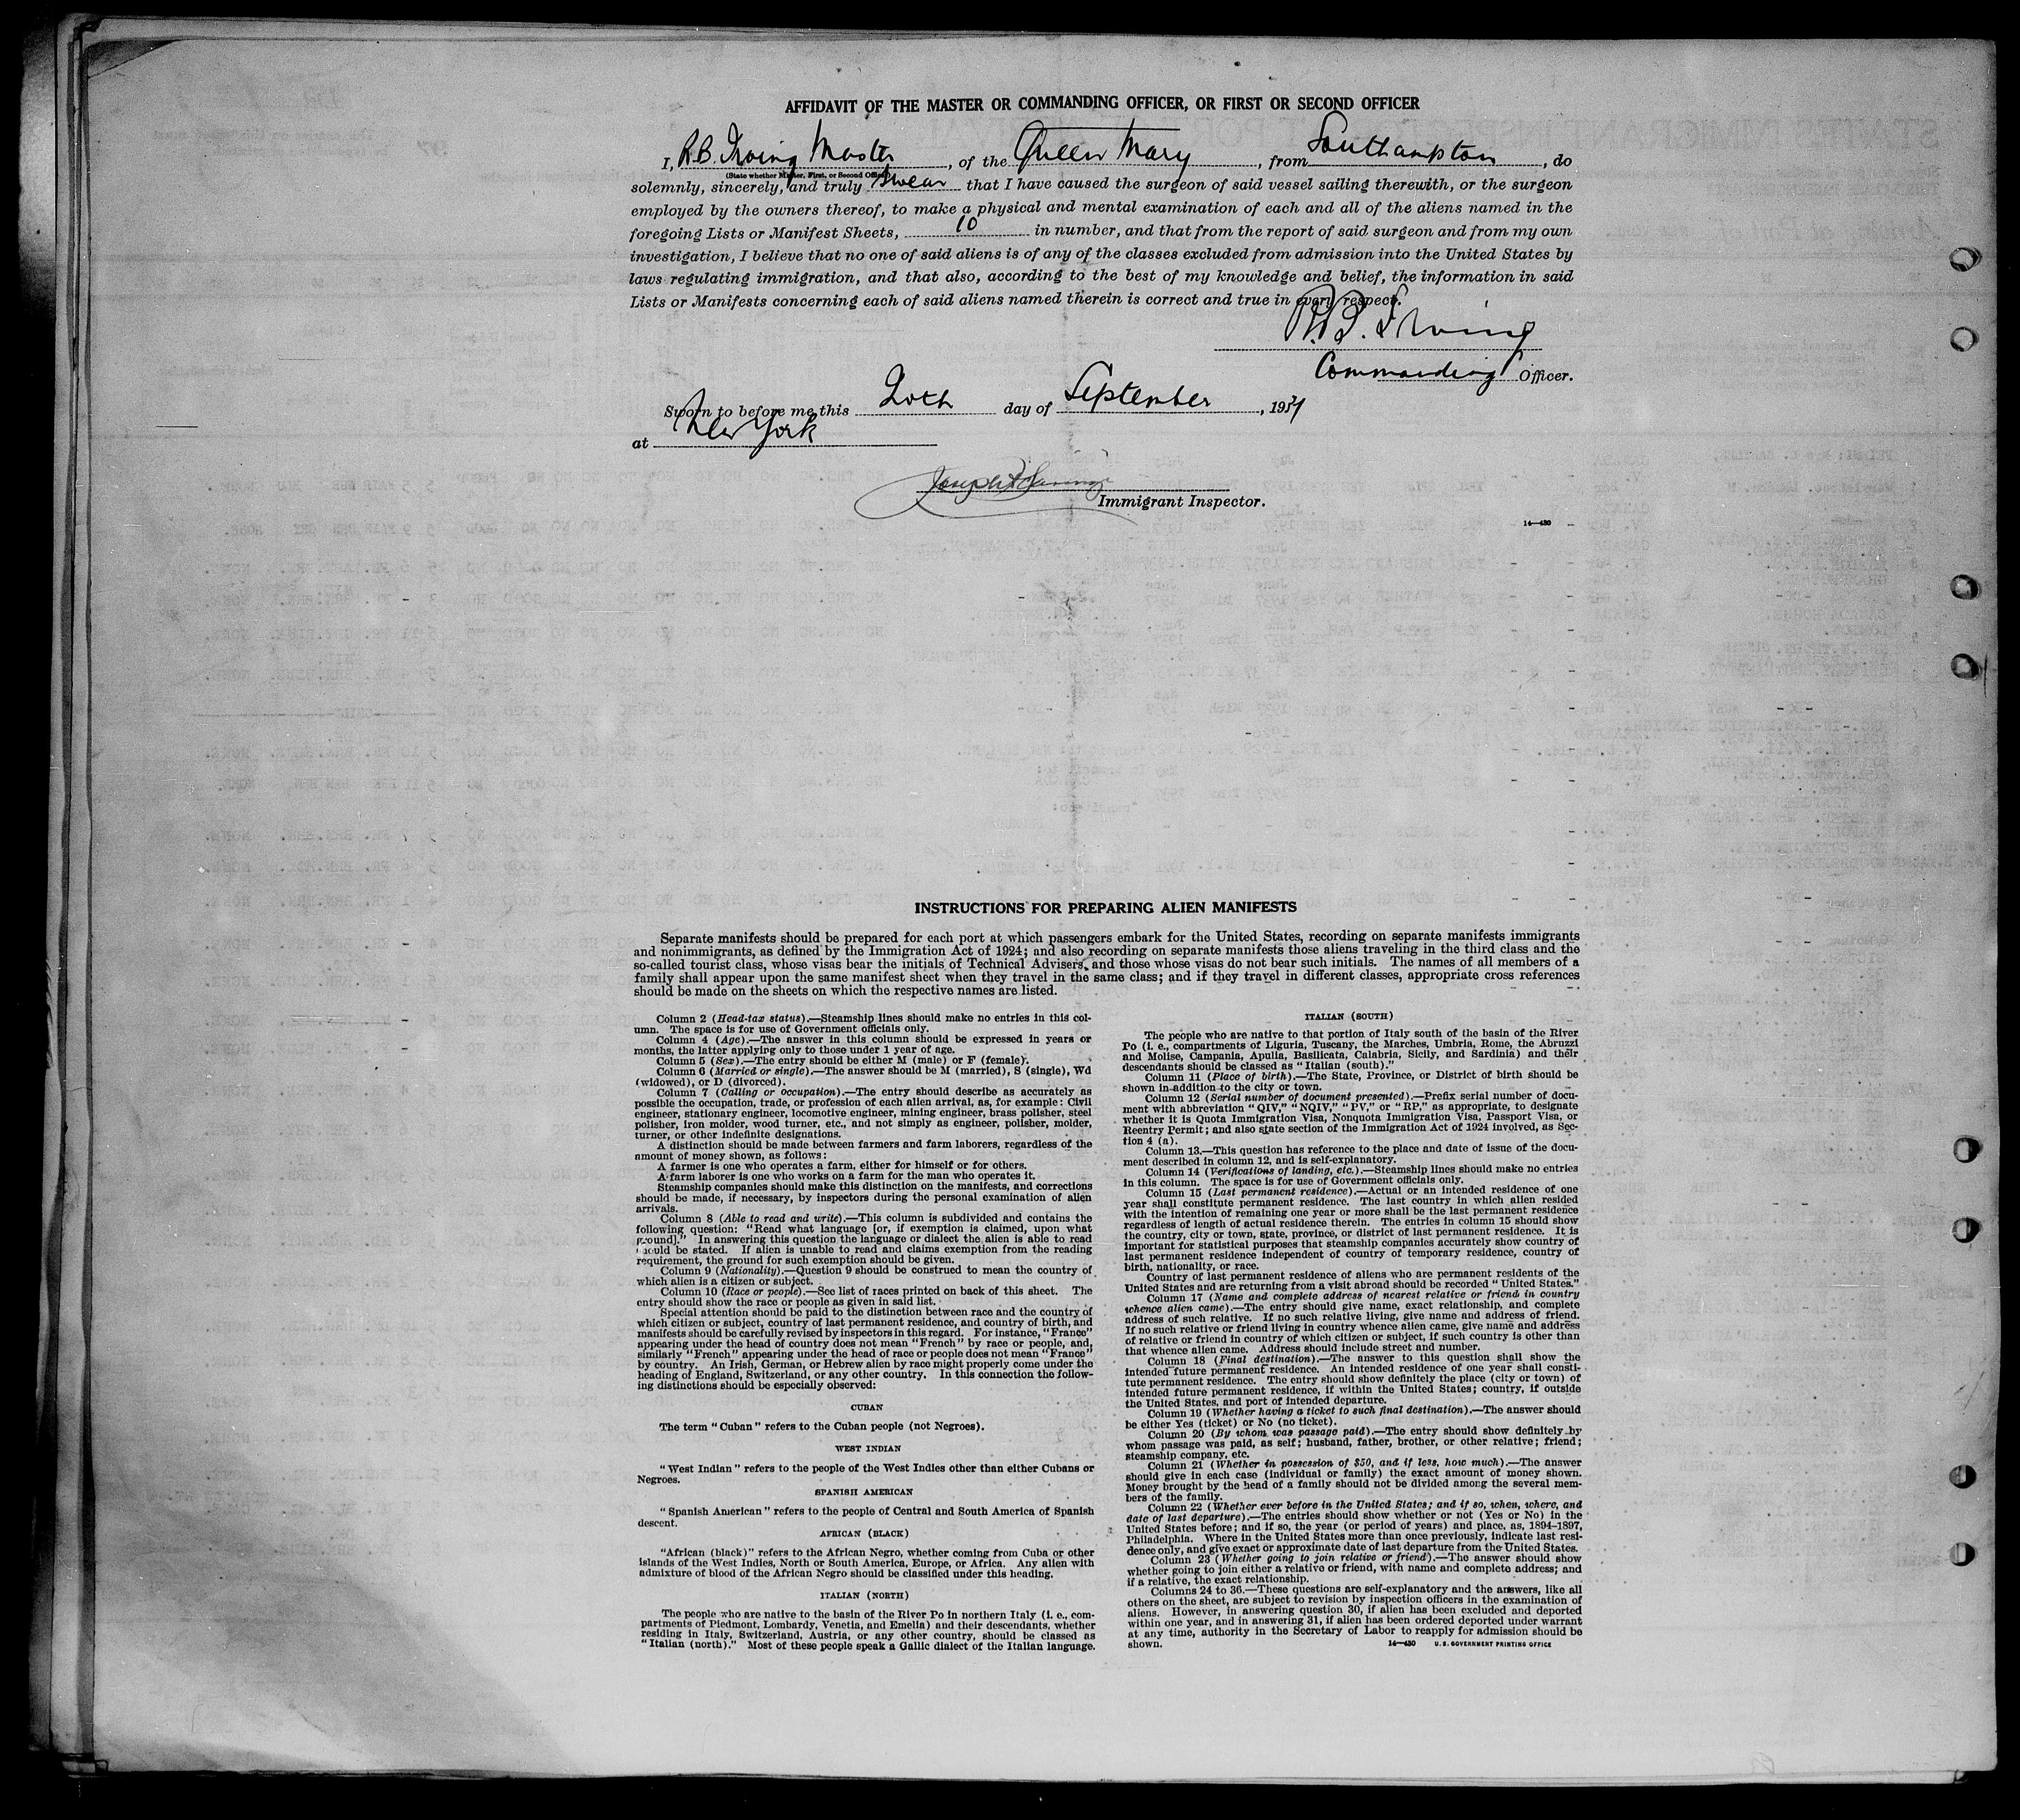 AFFIDAVIT OF THE MASTER OR COMMANDING OFFICER, OR FIRST OR SECOND OFFICER
I, R.B. Irving Master, of the Queen Mary, from Southampton, do
(State whether Master, First, or Second Officer)
solemnly, sincerely, and truly swear that I have caused the surgeon of said vessel sailing therewith, or the surgeon
employed by the owners thereof, to make a physical and mental examination of each and all of the aliens named in the
foregoing Lists or Manifest Sheets, 10 in number, and that from the report of said surgeon and from my own
investigation, I believe that no one of said aliens is of any of the classes excluded from admission into the United States by
laws regulating immigration, and that also, according to the best of my knowledge and belief, the information in said
Lists or Manifests concerning each of said aliens named therein is correct and true in every respect.
R.B. Irving
Commanding Officer.
Sworn to before me this 20th day of September, 1937
at New York
Immigrant Inspector.
14—430
INSTRUCTIONS FOR PREPARING ALIEN MANIFESTS
Separate manifests should be prepared for each port at which passengers embark for the United States, recording on separate manifests immigrants
and nonimmigrants, as defined by the Immigration Act of 1924; and also recording on separate manifests those aliens traveling in the third class and the
so-called tourist class, whose visas bear the initials of Technical Advisers, and those whose visas do not bear such initials. The names of all members of a
family shall appear upon the same manifest sheet when they travel in the same class; and if they travel in different classes, appropriate cross references
should be made on the sheets on which the respective names are listed.
Column 2 (Head-tax status).—Steamship lines should make no entries in this col-
umn. The space is for use of Government officials only.
Column 4 (Age).—The answer in this column should be expressed in years or
months, the latter applying only to those under 1 year of age.
Column 5 (Sex).—The entry should be either M (male) or F (female).
Column 6 (Married or single).—The answer should be M (married), S (single), Wd
(widowed), or D (divorced).
Column 7 (Calling or occupation).—The entry should describe as accurately as
possible the occupation, trade, or profession of each alien arrival, as, for example: Civil
engineer, stationary engineer, locomotive engineer, mining engineer, brass polisher, steel
polisher, iron molder, wood turner, etc., and not simply as engineer, polisher, molder,
turner, or other indefinite designations.
A distinction should be made between farmers and farm laborers, regardless of the
amount of money shown, as follows:
A farmer is one who operates a farm, either for himself or for others.
A farm laborer is one who works on a farm for the man who operates it.
Steamship companies should make this distinction on the manifests, and corrections
should be made, if necessary, by inspectors during the personal examination of alien
arrivals.
Column 8 (Able to read and write).—This column is subdivided and contains the
following question: "Read what language [or, if exemption is claimed, upon what
ground]." In answering this question the language or dialect the alien is able to read
should be stated. If alien is unable to read and claims exemption from the reading
requirement, the ground for such exemption should be given.
Column 9 (Nationality).—Question 9 should be construed to mean the country of
which alien is a citizen or subject.
Column 10 (Race or people).—See list of races printed on back of this sheet. The
entry should show the race or people as given in said list.
Special attention should be paid to the distinction between race and the country of
which citizen or subject, country of last permanent residence, and country of birth, and
manifests should be carefully revised by inspectors in this regard. For instance, "France"
appearing under the head of country does not mean "French" by race or people, and,
similarly "French" appearing under the head of race or people does not mean "France"
by country. An Irish, German, or Hebrew alien by race might properly come under the
heading of England, Switzerland, or any other country. In this connection the follow-
ing distinctions should be especially observed:
CUBAN
The term "Cuban" refers to the Cuban people (not Negroes).
WEST INDIAN
"West Indian" refers to the people of the West Indies other than either Cubans or
Negroes.
SPANISH AMERICAN
"Spanish American" refers to the people of Central and South America of Spanish
descent.
AFRICAN (BLACK)
"African (black)" refers to the African Negro, whether coming from Cuba or other
islands of the West Indies, North or South America, Europe, or Africa. Any alien with
admixture of blood of the African Negro should be classified under this heading.
ITALIAN (NORTH)
The people who are native to the basin of the River Po in northern Italy (i. e., com-
partments of Piedmont, Lombardy, Venetia, and Emelia) and their descendants, whether
residing in Italy, Switzerland, Austria, or any other country, should be classed as
"Italian (north)." Most of these people speak a Gallic dialect of the Italian language.
ITALIAN (SOUTH)
The people who are native to that portion of Italy south of the basin of the River
Po (i. e., compartments of Liguria, Tuscany, the Marches, Umbria, Rome, the Abruzzi
and Molise, Campania, Apulia, Basilicata, Calabria, Sicily, and Sardinia) and their
descendants should be classed as "Italian (south)."
Column 11 (Place of birth).—The State, Province, or District of birth should be
shown in addition to the city or town.
Column 12 (Serial number of document presented).—Prefix serial number of docu-
ment with abbreviation "QIV," "NQIV," "PV," or "RP," as appropriate, to designate
whether it is Quota Immigration Visa, Nonquota Immigration Visa, Passport Visa, or
Reentry Permit; and also state section of the Immigration Act of 1924 involved, as Sec-
tion 4 (a).
Column 13.—This question has reference to the place and date of issue of the docu-
ment described in column 12, and is self-explanatory.
Column 14 (Verifications of landing, etc.).—Steamship lines should make no entries
in this column. The space is for use of Government officials only.
Column 15 (Last permanent residence).—Actual or an intended residence of one
year shall constitute permanent residence. The last country in which alien resided
with the intention of remaining one year or more shall be the last permanent residence
regardless of length of actual residence therein. The entries in column 15 should show
the country, city or town, state, province, or district of last permanent residence. It is
important for statistical purposes that steamship companies accurately show country of
last permanent residence independent of country of temporary residence, country of
birth, nationality, or race.
Country of last permanent residence of aliens who are permanent residents of the
United States and are returning from a visit abroad should be recorded "United States."
Column 17 (Name and complete address of nearest relative or friend in country
whence alien came).—The entry should give name, exact relationship, and complete
address of such relative. If no such relative living, give name and address of friend.
If no such relative or friend living in country whence alien came, give name and address
of relative or friend in country of which citizen or subject, if such country is other than
that whence alien came. Address should include street and number.
Column 18 (Final destination).—The answer to this question shall show the
intended future permanent residence. An intended residence of one year shall consti-
tute permanent residence. The entry should show definitely the place (city or town) of
intended future permanent residence, if within the United States; country, if outside
the United States, and port of intended departure.
Column 19 (Whether having a ticket to such final destination).—The answer should
be either Yes (ticket) or No (no ticket).
Column 20 (By whom was passage paid).—The entry should show definitely by
whom passage was paid, as self; husband, father, brother, or other relative; friend;
steamship company, etc.
Column 21 (Whether in possession of $50, and if less, how much).—The answer
should give in each case (individual or family) the exact amount of money shown.
Money brought by the head of a family should not be divided among the several mem-
bers of the family.
Column 22 (Whether ever before in the United States; and if so, when, where, and
date of last departure).—The entries should show whether or not (Yes or No) in the
United States before; and if so, the year (or period of years) and place, as, 1894–1897,
Philadelphia. Where in the United States more than once previously, indicate last resi-
dence only, and give exact or approximate date of last departure from the United States.
Column 23 (Whether going to join relative or friend).—The answer should show
whether going to join either a relative or friend, with name and complete address; and
if a relative, the exact relationship.
Columns 24 to 36.—These questions are self-explanatory and the answers, like all
others on the sheet, are subject to revision by inspection officers in the examination of
aliens. However, in answering question 30, if alien has been excluded and deported
within one year, and in answering 31, if alien has been ordered deported under warrant
at any time, authority in the Secretary of Labor to reapply for admission should be
shown.
14—430 U. S. GOVERNMENT PRINTING OFFICE